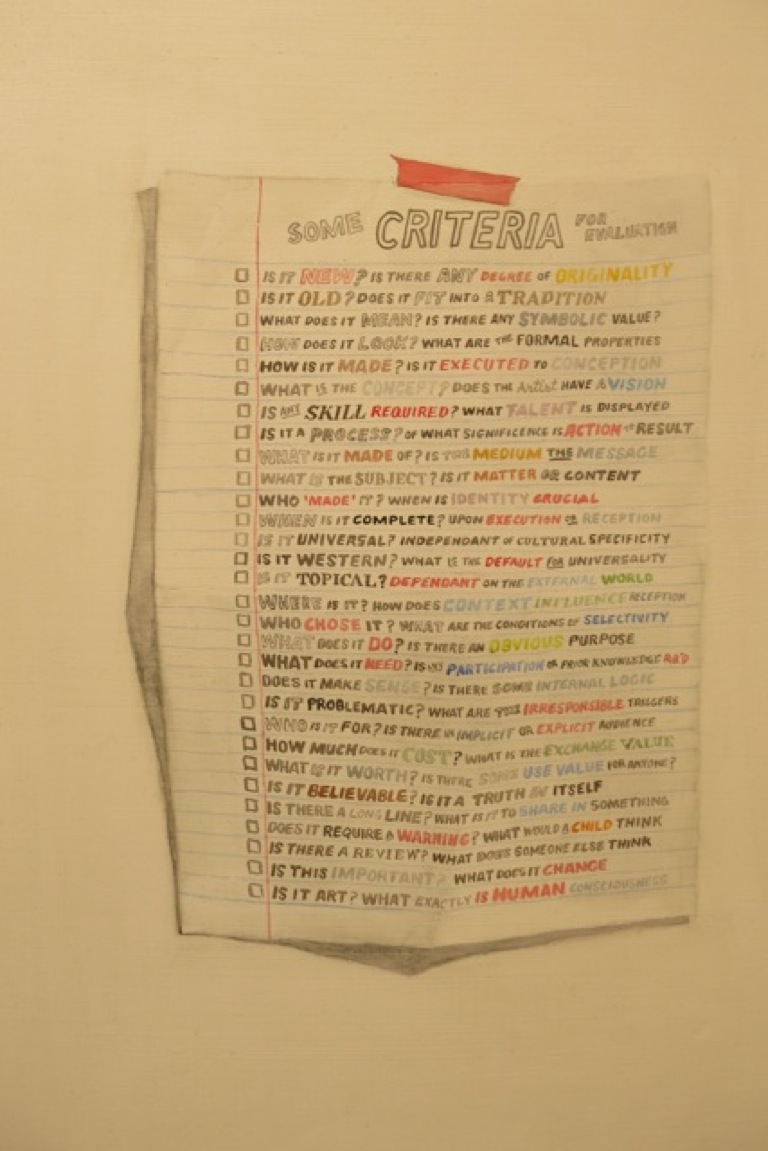 SOME CRITERIA FOR EVALUATION
IS IT NEW? IS THERE ANY DEGREE OF ORIGINALITY
IS IT OLD? DOES IT FIT INTO A TRADITION
WHAT DOES IT MEAN? IS THERE ANY SYMBOLIC VALUE?
HOW DOES IT LOOK? WHAT ARE THE FORMAL PROPERTIES
HOW IS IT MADE? IS IT EXECUTED TO CONCEPTION
WHAT IS THE CONCEPT? DOES THE Artist HAVE A VISION
IS ANY SKILL REQUIRED? WHAT TALENT IS DISPLAYED
IS IT A PROCESS? OF WHAT SIGNIFICENCE IS ACTION TO RESULT
WHAT IS IT MADE OF? IS THE MEDIUM THE MESSAGE
WHAT IS THE SUBJECT? IS IT MATTER OR CONTENT
WHO 'MADE' IT? WHEN IS IDENTITY CRUCIAL
WHEN IS IT COMPLETE? UPON EXECUTION OR RECEPTION
IS IT UNIVERSAL? INDEPENDANT OF CULTURAL SPECIFICITY
IS IT WESTERN? WHAT IS THE DEFAULT FOR UNIVERSALITY
IS IT TOPICAL? DEPENDANT ON THE EXTERNAL WORLD
WHERE IS IT? HOW DOES CONTEXT INFLUENCE RECEPTION
WHO CHOSE IT? WHAT ARE THE CONDITIONS OF SELECTIVITY
WHAT DOES IT DO? IS THERE AN OBVIOUS PURPOSE
WHAT DOES IT NEED? IS PARTICIPATION OR PRIOR KNOWLEDGE RQ'D
DOES IT MAKE SENSE? IS THERE SOME INTERNAL LOGIC
IS IT PROBLEMATIC? WHAT ARE THE IRRESPONSIBLE TRIGGERS
WHO IS IT FOR? IS THERE AN IMPLICIT OR EXPLICIT AUDIENCE
HOW MUCH DOES IT COST? WHAT IS THE EXCHANGE VALUE
WHAT IS IT WORTH? IS THERE SOME USE VALUE FOR ANYONE?
IS IT BELIEVABLE? IS IT A TRUTH IN ITSELF
IS THERE A LONG LINE? WHAT IS IT TO SHARE IN SOMETHING
DOES IT REQUIRE A WARNING? WHAT WOULD A CHILD THINK
IS THERE A REVIEW? WHAT DOES SOMEONE ELSE THINK
IS THIS IMPORTANT? WHAT DOES IT CHANGE
IS IT ART? WHAT EXACTLY IS HUMAN CONSCIOUSNESS